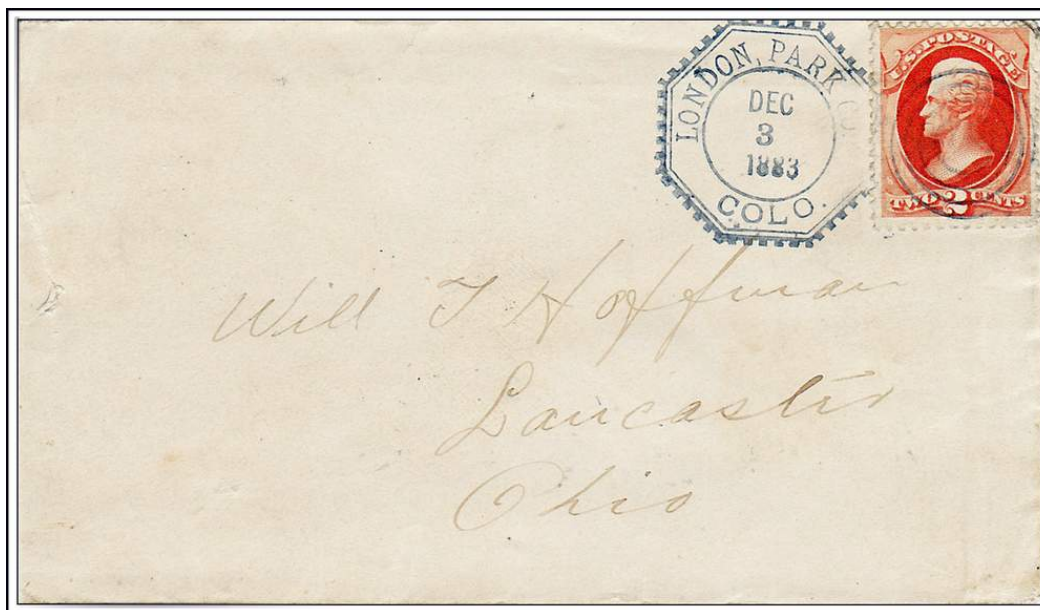 LONDON, PARK CO.
DEC
3
1883
COLO.
U.S. POSTAGE
TWO 2 CENTS
Will T Hoffman
Lancaster
Ohio